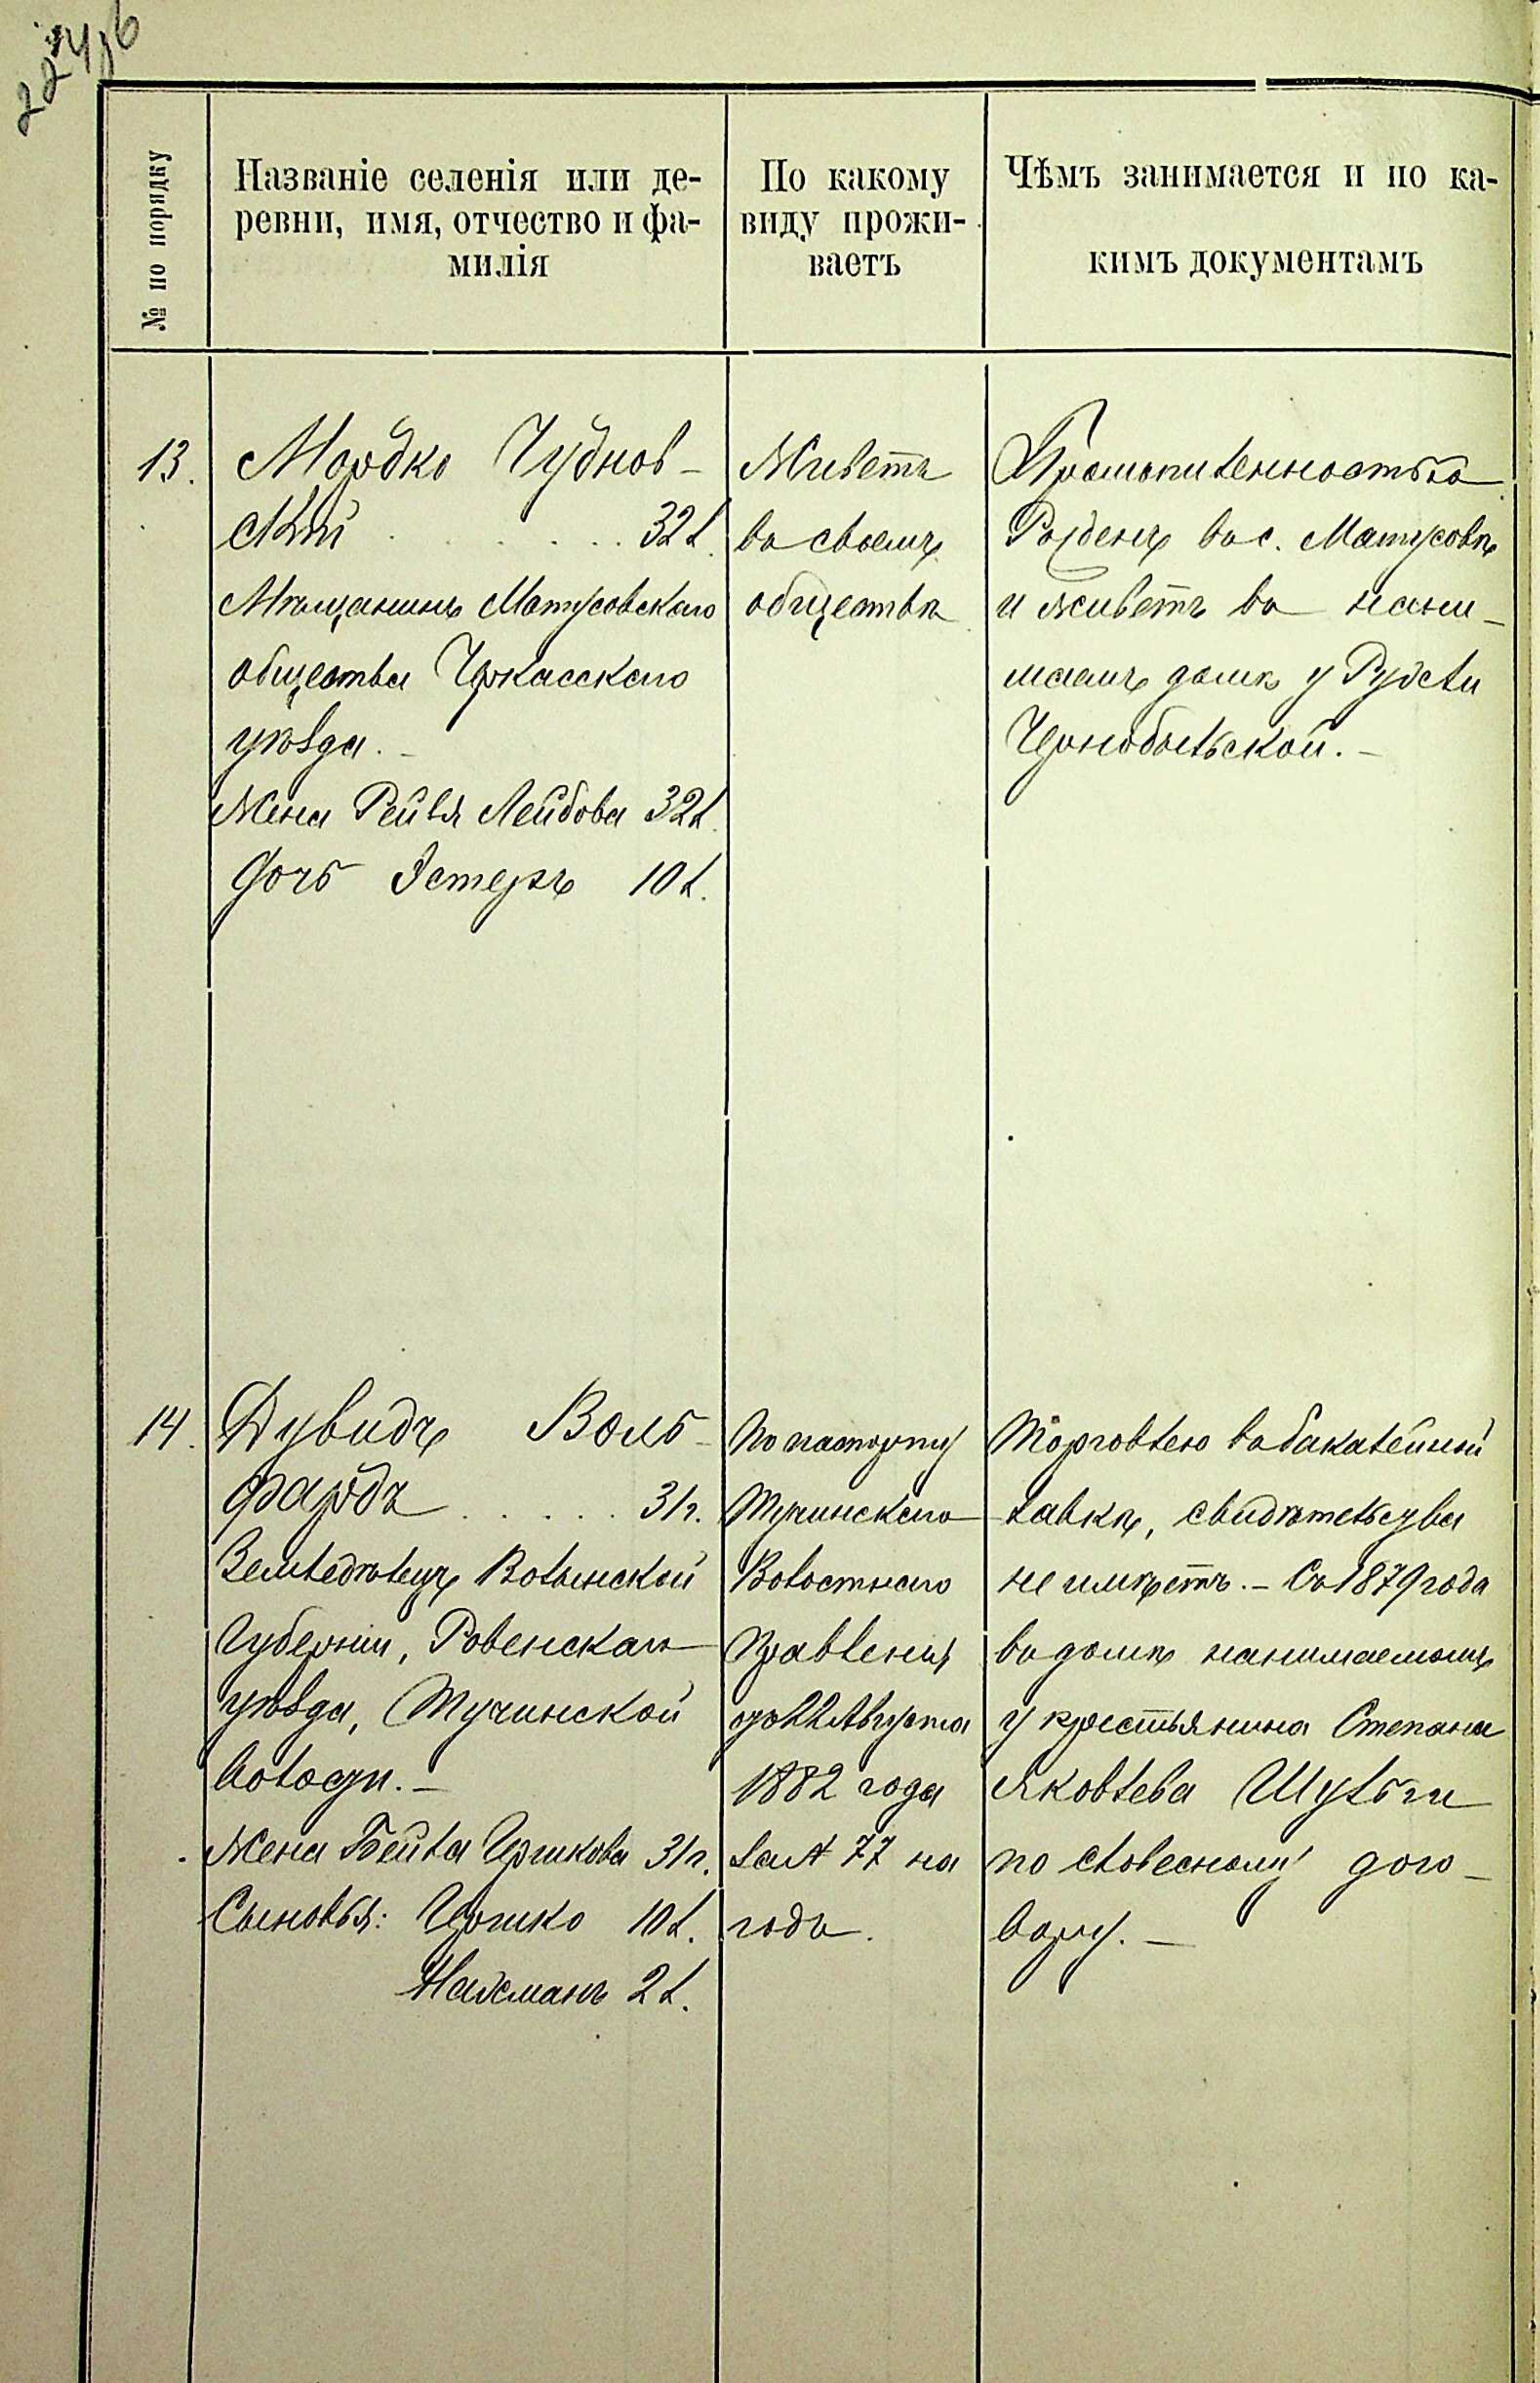 № по порядку
Названіе селенія или де-
ревни, имя, отчество и фа-
милія
По какому
виду прожи-
ваетъ
Чѣмъ занимается и по ка-
кимъ документамъ
13.
Мордко Чуднов-
скій . . . . . . 32 л.
Мѣщанинъ Матусовскаго
общества Черкасскаго
уѣзда. -
Жена Рейзя Лейбова 32 л.
Дочь Эстеръ 10 л.
Живетъ
въ своемъ
обществѣ
Промышленностью
Рожденъ въ с. Матусовѣ
и живетъ въ нани-
маемъ домѣ у Рухли
Чернобыльской. -
14.
Дувидъ Воль-
фардъ . . . . . 31 г.
Земледѣлецъ Волынской
Губерніи, Ровенскаго
уѣзда, Тучинской
волости. -
Жена Бейла Иршкова 31 г.
Сыновья: Иршко 10 л.
Нахманъ 2 л.
По паспорту
Тучинскаго
Волостнаго
Правленія
отъ 22 Августа
1882 года
за № 77 на
годъ.
Торговлею въ бакалейной
лавкѣ, свидѣтельства
не имѣетъ. - Съ 1879 года
въ домѣ нанимаемомъ
у крестьянина Степана
Яковлева Шульги
по словесному дого-
вору. -